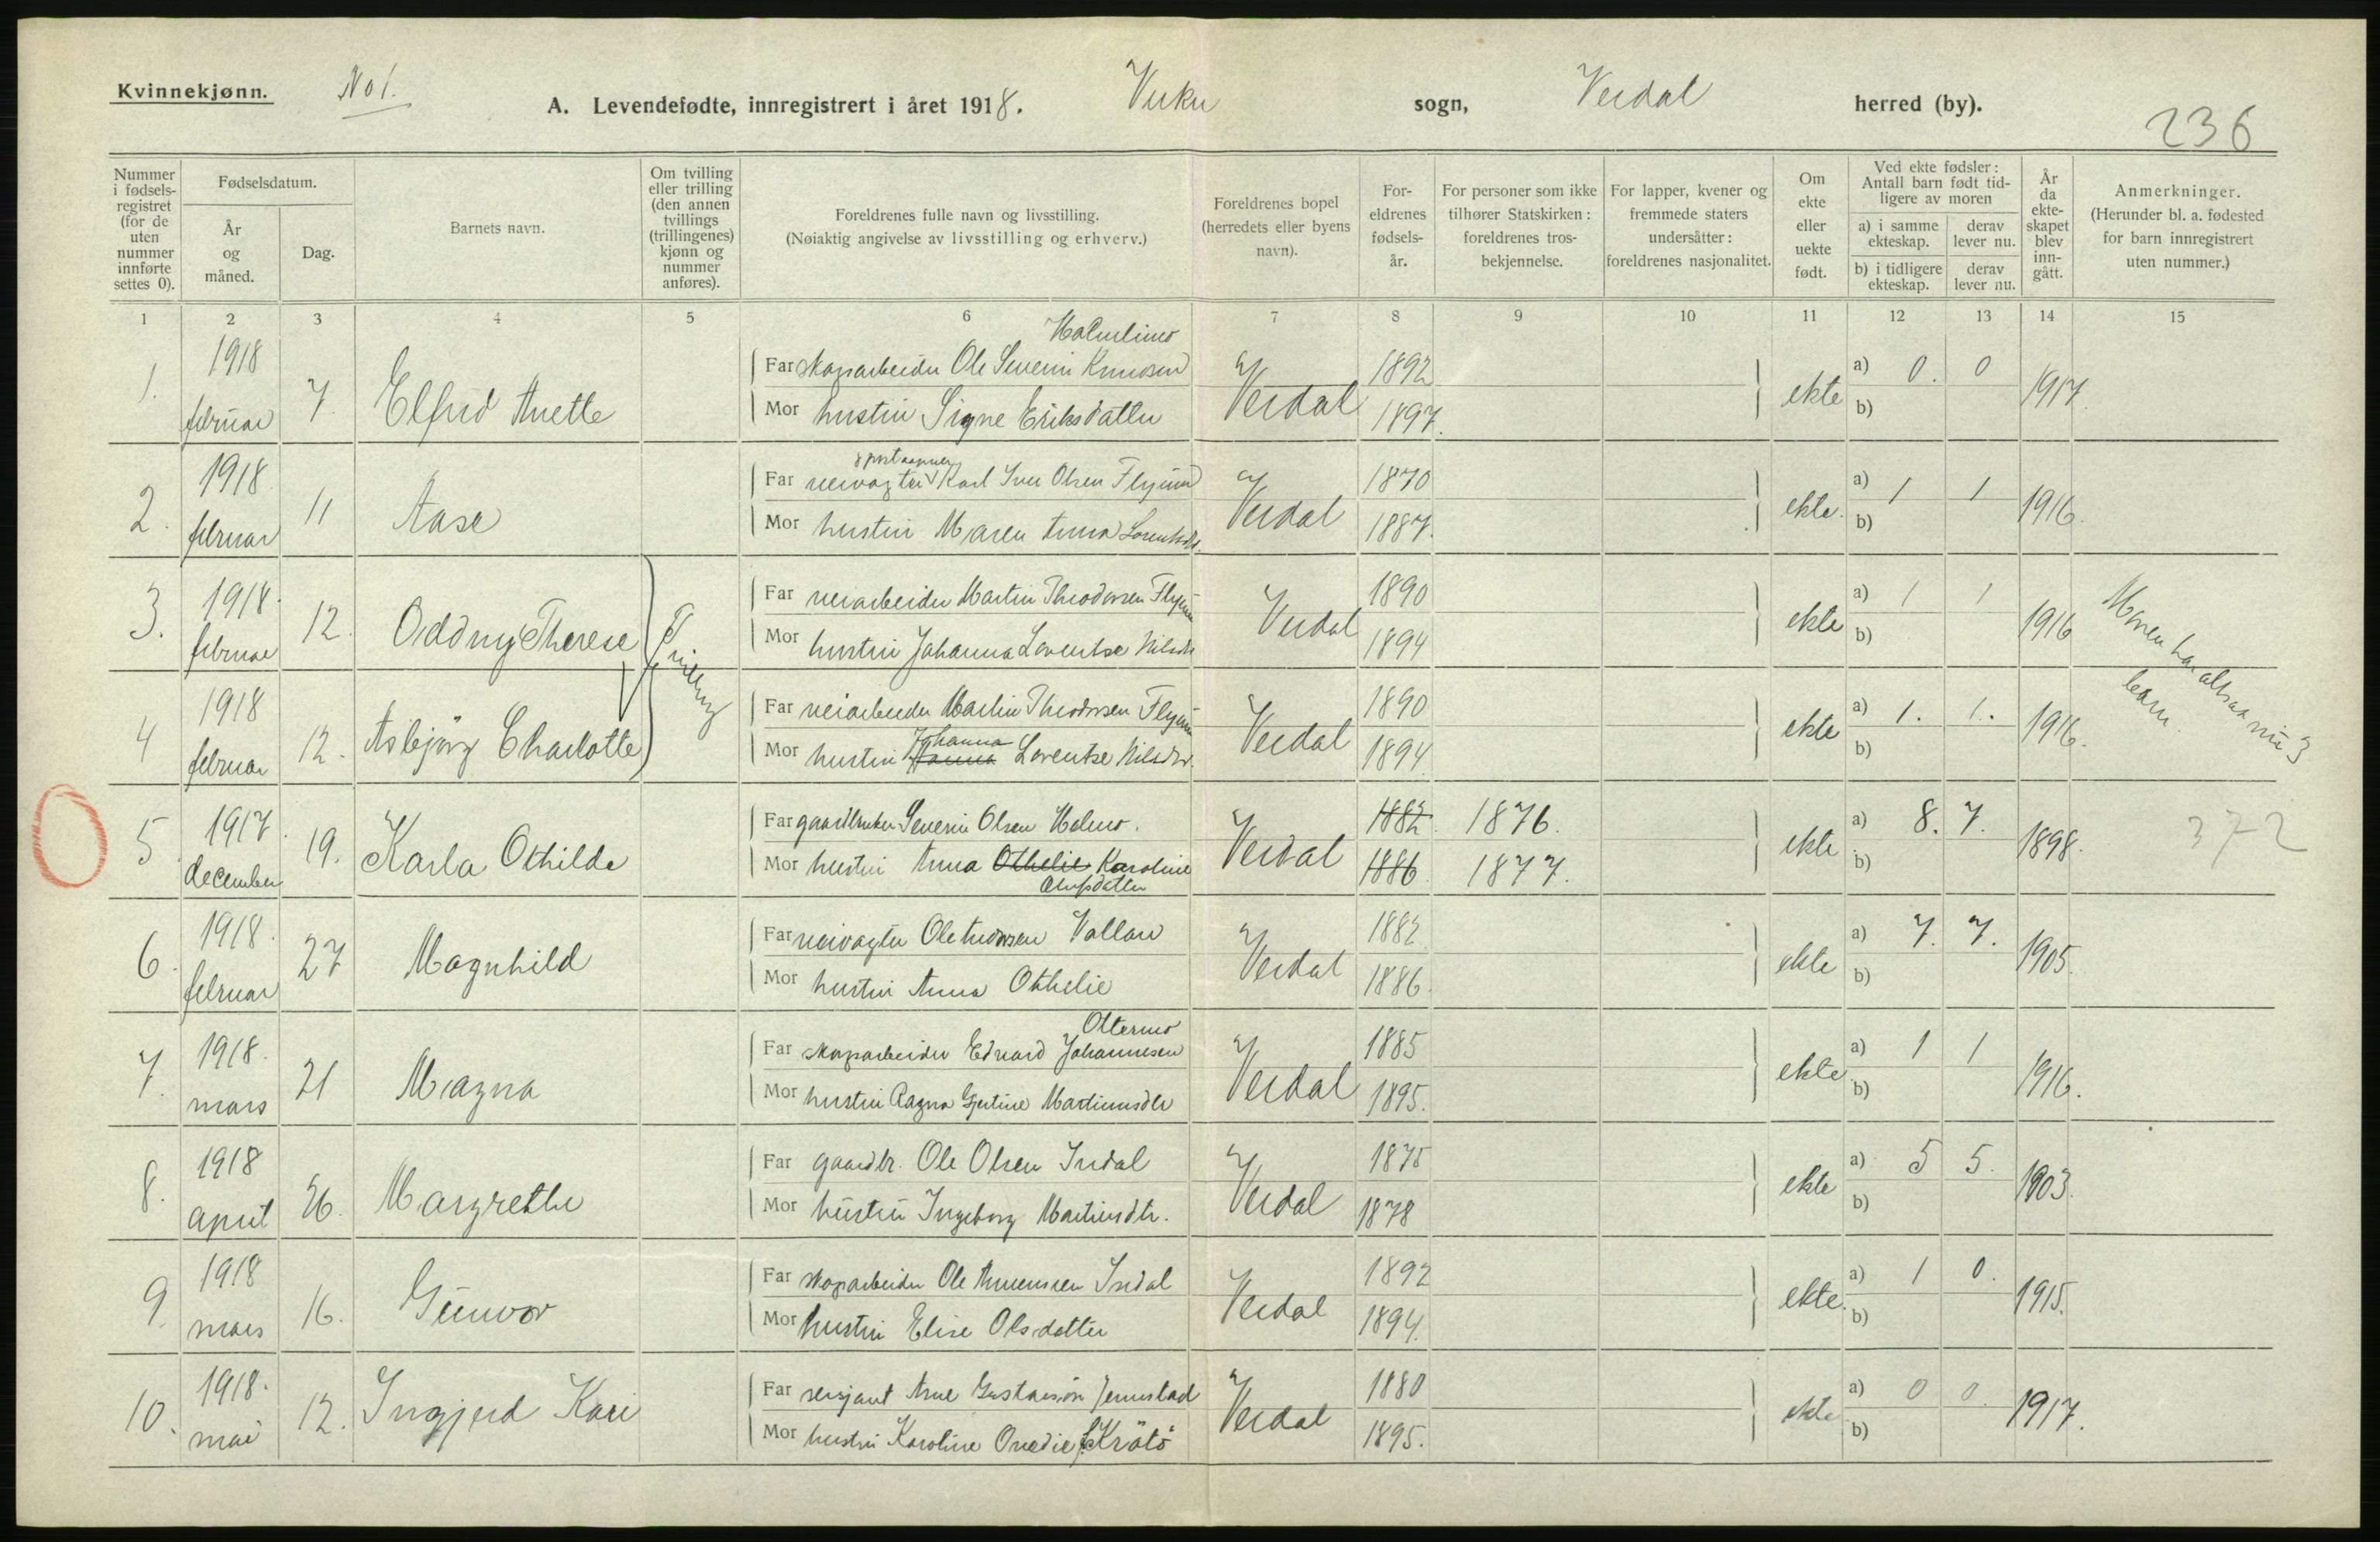 Kvinnekjønn. No 1.
A. Levendefødte, innregistrert i året 1918. Vuku sogn, Verdal herred (by).
236
Nummer i fødsels-registret (for de uten nummer innførte settes 0).
Fødselsdatum.
År og måned.
Dag.
Barnets navn.
Om tvilling eller trilling (den annen tvillings (trillingenes) kjønn og nummer anføres).
Foreldrenes fulle navn og livsstilling.
(Nøiaktig angivelse av livsstilling og erhverv.)
Foreldrenes bopel (herredets eller byens navn).
For-eldrenes fødsels-år.
For personer som ikke tilhører Statskirken: foreldrenes tros-bekjennelse.
For lapper, kvener og fremmede staters undersåtter: foreldrenes nasjonalitet.
Om ekte eller uekte født.
Ved ekte fødsler: Antall barn født tid-ligere av moren
a) i samme ekteskap.
derav lever nu.
b) i tidligere ekteskap.
derav lever nu.
År da ekte-skapet blev inn-gått.
Anmerkninger.
(Herunder bl. a. fødested for barn innregistrert uten nummer.)
1 2 3 4 5 6 7 8 9 10 11 12 13 14 15
Holmlimo
1. 1918 februar 7. Elfrid Anette Far skogarbeider Ole Severin Knudsen Verdal 1892 ekte a) 0. 0 1917.
Mor hustru Signe Eriksdatter 1897. b)
2. 1918 februar 11 Aase Far veivogter Karl Iver Olsen Flyum Verdal 1870 ekte. a) 1 1 1916.
Mor hustru Maren Anna Lorentsdt. 1887. b)
3. 1918. februar 12. Oddny Therese Tvilling Far veiarbeider Martin Theodorsen Flyum Verdal 1890 ekte a) 1 1 1916
Mor hustru Johanna Lorentse Nilsdt 1894 b)
Moren har altsaa nu 3 barn.
4 1918 februar 12. Asbjörg Charlotte Far veiarbeider Martin Theodorsen Flyum Verdal 1890 ekte a) 1. 1. 1916.
Mor hustru Hanna Johanna Lorentse Nilsdtr. 1894. b)
5. 1917. december 19. Karla Othilde Far gaardbruker Severin Olsen Holmo. Verdal 1882. 1876. ekte a) 8. 7. 1898. 372
Mor hustru Anna Othelie Karoline Olufsdatter 1886. 1877. b)
6. 1918. februar 27 Magnhild Far veivogter Ole Andorsen Vollan Verdal 1882. ekte a) 7. 7. 1905.
Mor hustru Anna Othelie 1886. b)
Ottermo
7. 1918. mars 21 Magna Far skogarbeider Edvard Johannesen Verdal 1885 ekte a) 1 1 1916.
Mor hustru Ragna Gjertine Martinusdtr 1895. b)
8. 1918 april 26. Margrethe Far gaardbr. Ole Olsen Indal Verdal 1875 ekte a) 5 5. 1903.
Mor hustru Ingeborg Martinsdtr. 1878 b)
9. 1918 mars 16. Gunvor Far skogarbeider Ole Indal Verdal 1892 ekte. a) 1 0. 1915.
Mor hustru Elise Olsdatter 1894. b)
10. 1918. mai 12. Ingjerd Kari Far sersjant Arne Gustavson Jermstad Verdal 1880 ekte a) 0 0. 1917.
Mor hustru Karoline Ovedie f. Krötö 1895. b)